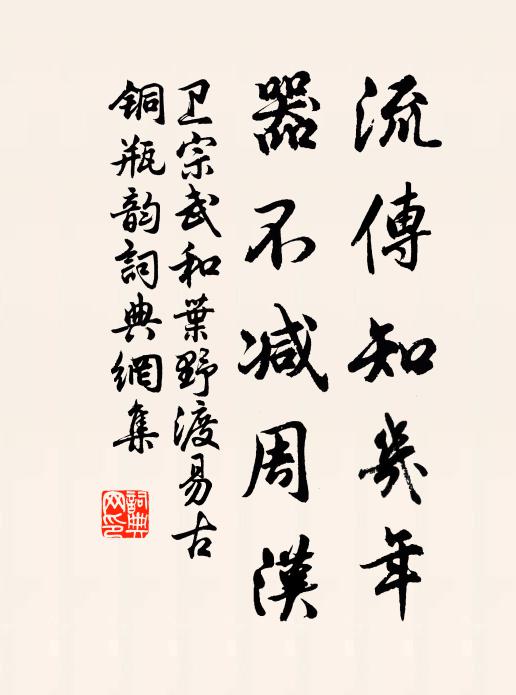 流傳知幾年
器不减周漢
卫宗武和葉野渡易古
銅瓶韵詞典網集
詞典網印